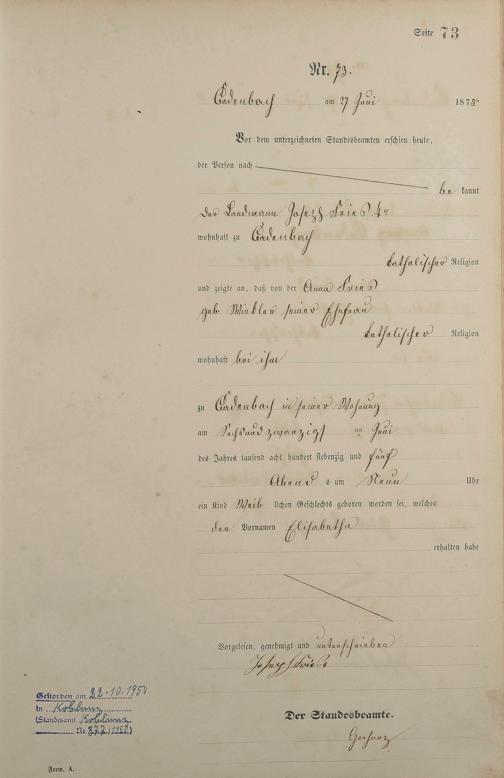 Seite 73
Nr. 73.
Cadenbach am 27 Juni 1875
Vor dem unterzeichneten Standesbeamten erschien heute,
der Person nach
be kannt
der Landmann Joseph Fries 4r
wohnhaft zu Cadenbach
katholischer Religion
und zeigte an, daß von der Anna Fries
geb Winkler seiner Ehefrau
katholischer Religion
wohnhaft bei ihm
zu Cadenbach in seiner Wohnung
am Sechsundzwanzigst en Juni
des Jahres tausend acht hundert siebenzig und fünf
Abend s um Neun Uhr
ein Kind Weib lichen Geschlechts geboren worden sei, welches
den Vornamen Elisabetha
erhalten habe
Vorgelesen, genehmigt und unterschrieben
Joseph Fries
Der Standesbeamte.
Gestorben am 22.10.1950
in Koblenz
(Standesamt Koblenz
Nr 877/1950)
Form. A.